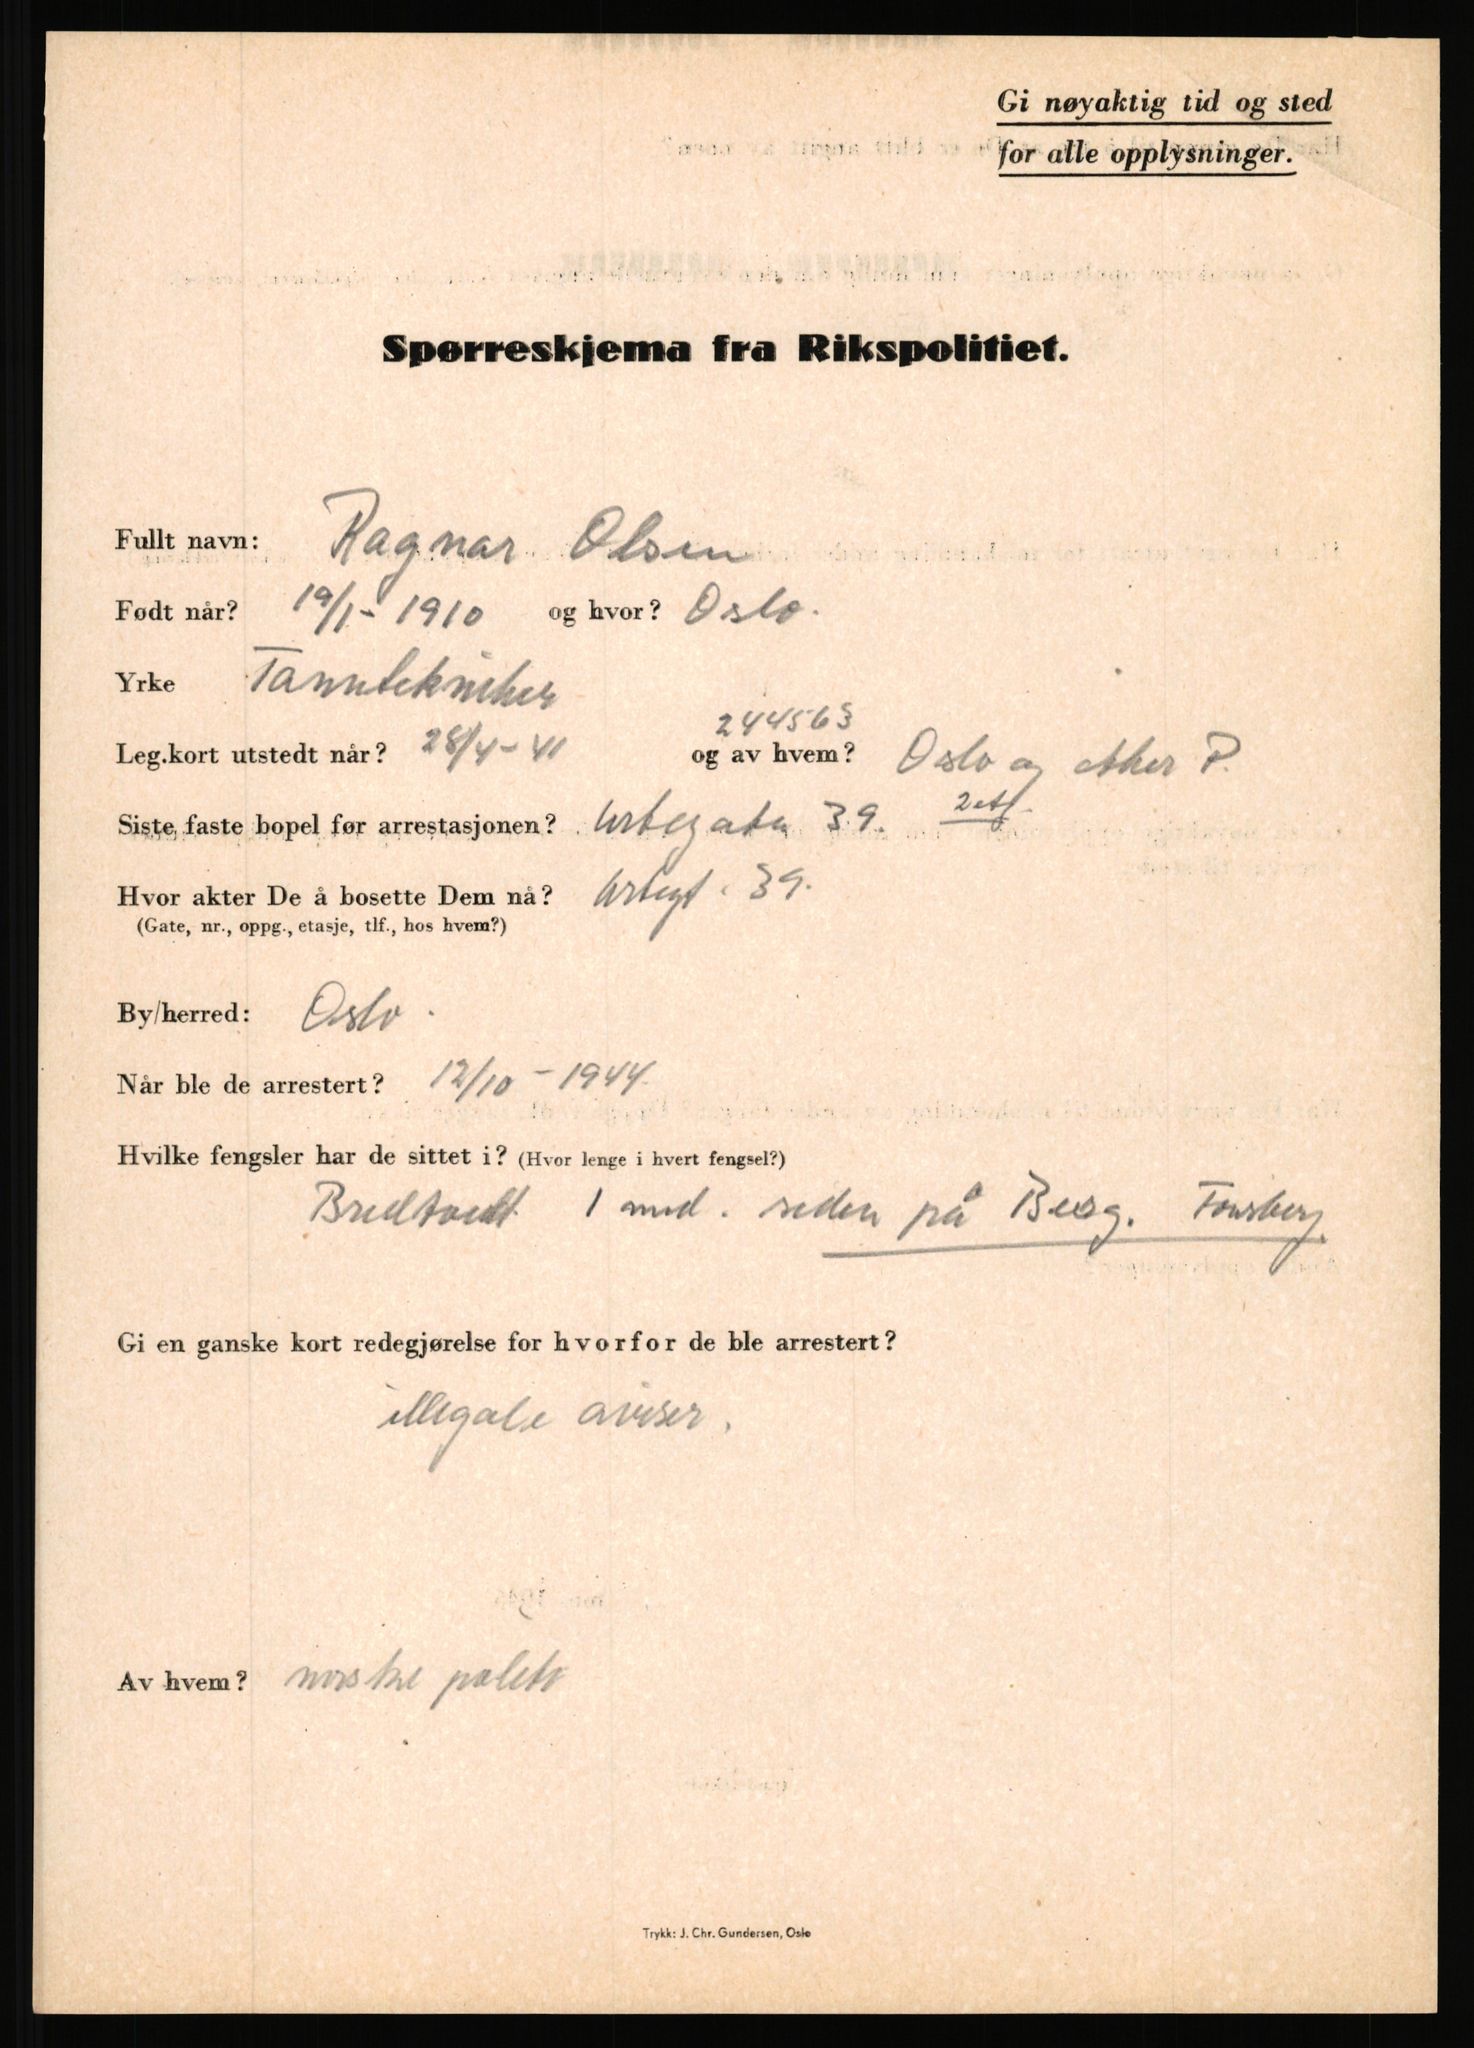 Gi nøyaktig tid og sted
for alle opplysninger.
Spørreskjema fra Rikspolitiet.
Fullt navn: Ragnar Olsen
Født når? 19/1 - 1910 og hvor? Oslo.
Yrke Tanntekniker
244563
Leg.kort utstedt når? 28/4 - 41 og av hvem? Oslo og Aker P.
Siste faste bopel før arrestasjonen? Urtegata 39. 2 etg.
Hvor akter De å bosette Dem nå? Urtegt. 39.
(Gate, nr., oppg., etasje, tlf., hos hvem?)
By/herred: Oslo.
Når ble de arrestert? 12/10 - 1944.
Hvilke fengsler har de sittet i? (Hvor lenge i hvert fengsel?)
Bredtvedt 1 mnd. siden på Berg. Tønsberg.
Gi en ganske kort redegjørelse for hvorfor de ble arrestert?
illegale aviser.
Av hvem? norske politi
Trykk: J. Chr. Gundersen, Oslo